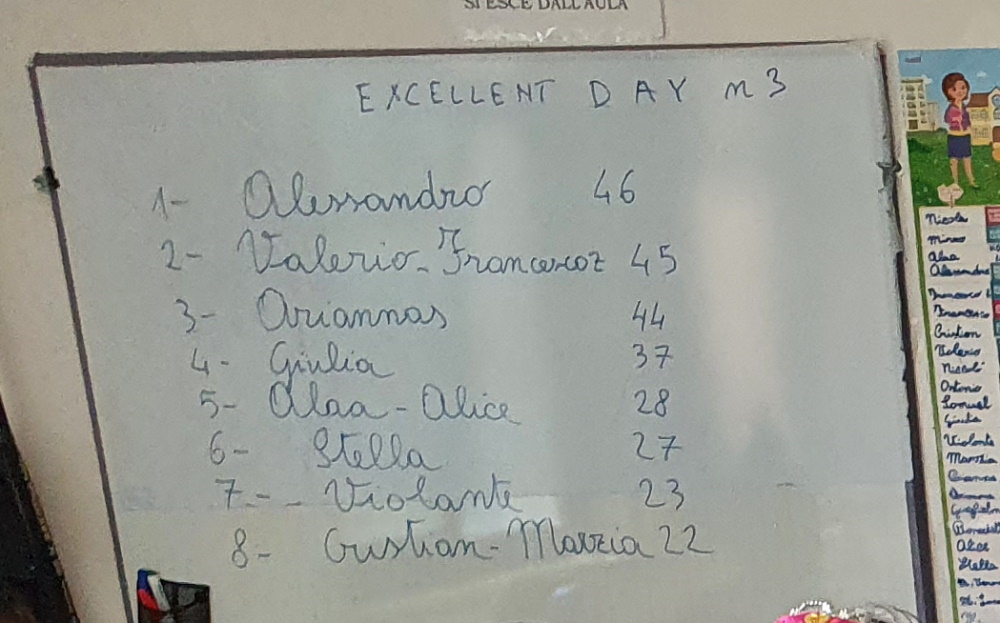 SI ESCE DALL'AULA
EXCELLENT DAY n 3
1- Alessandro 46
2- Valerio - Francescoz 45
3- Ariannas 44
4- Giulia 37
5- Alaa - Alice 28
6- Stella 27
7- - Violante 23
8- Cristian - Marzia 22
Nicola
Alaa
Alessandro
Francesco
Cristian
Valerio
Niccolò
Antonio
Samuel
Giulia
Violante
Marzia
Alice
Stella